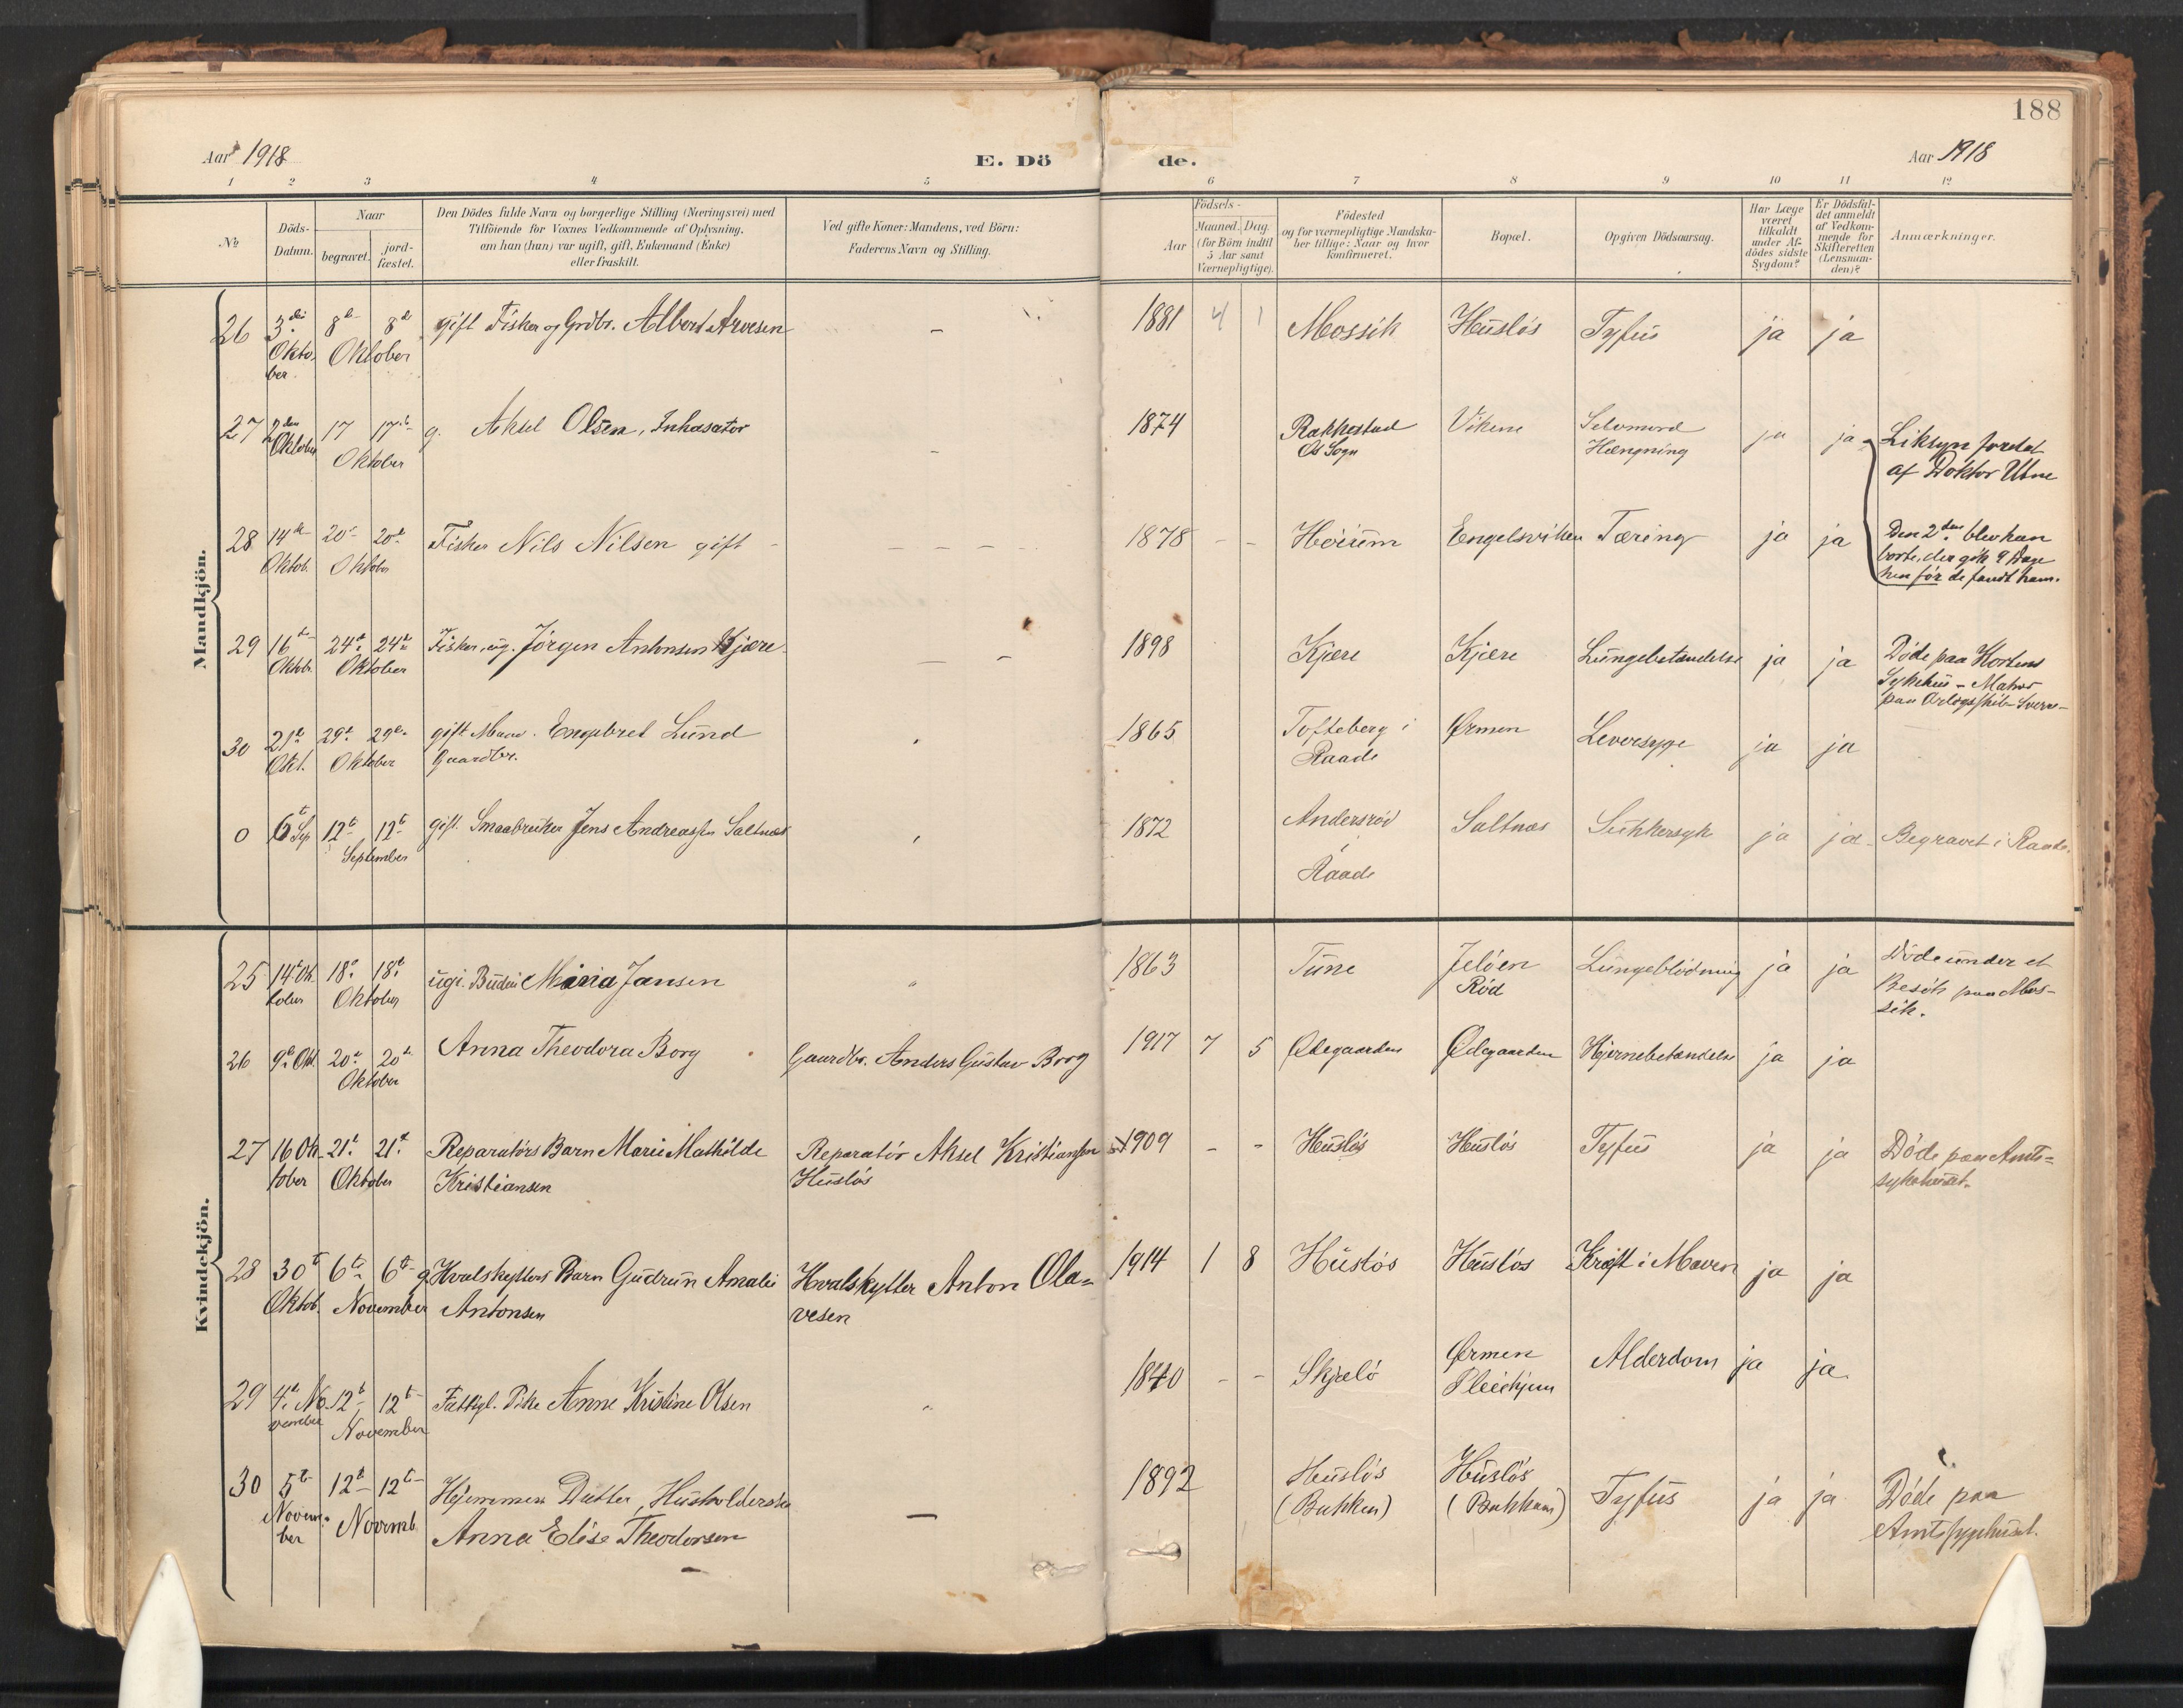 188
Aar 1918
E. Dö
de.
Aar 1918
1 2 3 4 5 6 7 8 9 10 11 12
№
Döds-Datum.
Naar
begravet.
jord-fæstet.
Den Dödes fulde Navn og borgerlige Stilling (Næringsvei) med
Tilföiende for Voxnes Vedkommende af Oplysning,
om han (hun) var ugift, gift, Enkemand (Enke)
eller fraskilt.
Ved gifte Koner: Mandens, ved Börn:
Faderens Navn og Stilling.
Födsels-
Aar
Maaned. Dag.
(for Börn indtil
5 Aar samt
Værnepligtige).
Födested
og for værnepligtige Mandska-
ber tillige: Naar og hvor
konfirmeret.
Bopæl.
Opgiven Dödsaarsag.
Har Læge
været
tilkaldt
under Af-
dödes sidste
Sygdom?
Er Dödsfal-
det anmeldt
af Vedkom-
mende for
Skifteretten
(Lensman-
den)?
Anmærkninger.
Mandkjön.
26 3die Oktober 8de 8de Oktober gift Fisker og Grdbr. Albert Arvesen - 1881 4 1 Mossik Husløs Tyfus ja ja
27 2den Oktober 17 17de Oktober g. Aksel Olsen, Inkasator - 1874 Rakkestad Os Sogn Vikene Selvmord Hængning ja ja Liksyn fordet
af Doktor Utne
Den 2den blev han
borte, der gik 9 Dage
hen før de fandt ham.
28 14de Oktob. 20de 20de Oktober Fisker Nils Nilsen gift - - - - 1878 - - Høium Engelsviken Tæring ja ja
29 16de Oktbr. 24de 24de Oktober Fisker, ug. Jørgen Antonsen Kjære - - 1898 Kjære Kjære Lungebetændelse ja ja Døde paa Hortens
Sykehus - Matros
paa Orlogsskib
30 21de Okt. 29de 29de Oktober gift Engebret Lund
Gaardbr. 1865 Tofteberg i
Raade Ørmen Leversyge ja ja
0 6t Sep 12t 12t September gift Smaabruker Jens Andreassen Saltnæs 1872 Andersrød
i
Raade Saltnæs Sukkersyk ja ja Begravet i Raade.
Kvindekjön.
25 14de Oktober 18de 18de Oktober ugi. Budeie Maria Jansen " 1863 Tune Jeløen
Rød Lungeblødning ja ja Døde under et
Besøk paa Mos-
sik.
26 9de Okt. 20de 20de Oktober Anna Theodora Borg Gaardbr. Anders Gustav Borg 1917 7 5 Ødegaarden Ødegaarden Hjernebetændelse ja ja
27 16 Oktober 21de 21de Oktober Reparatørs Barn Marie Mathilde
Kristiansen Reparatør Aksel Kristiansen
Husløs 1909 - - Husløs Husløs Tyfus ja ja Døde paa Amts-
sykehuset.
28 30t Oktob. 6te 6te November Hvalskytters Barn Gudrun Amalie
Antonsen Hvalskytter Anton Ola-
vesen 1914 1 8 Husløs Husløs Kræft i Maven ja ja
29 4de November 12te 12te November Fattigl. Pike Anne Kristine Olsen " 1840 - - Skjælø Ørmen
Pleiehjem Alderdom ja ja
30 5te November 12te 12te Novemb. Hjemmev. Datter, Husholderske
Anna Elise Theodorsen - 1892 Husløs
(Bakken) Husløs
(Bakken) Tyfus ja ja Døde paa
Amtssygehuset.